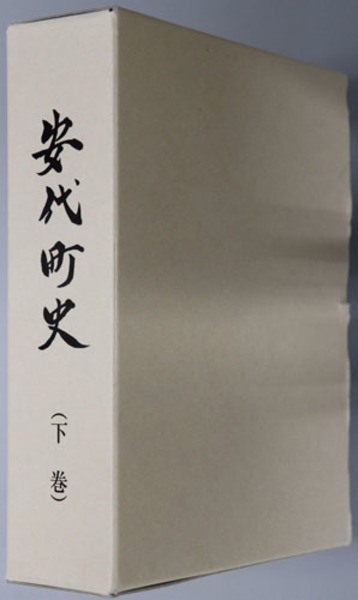 安代町史
(下巻)